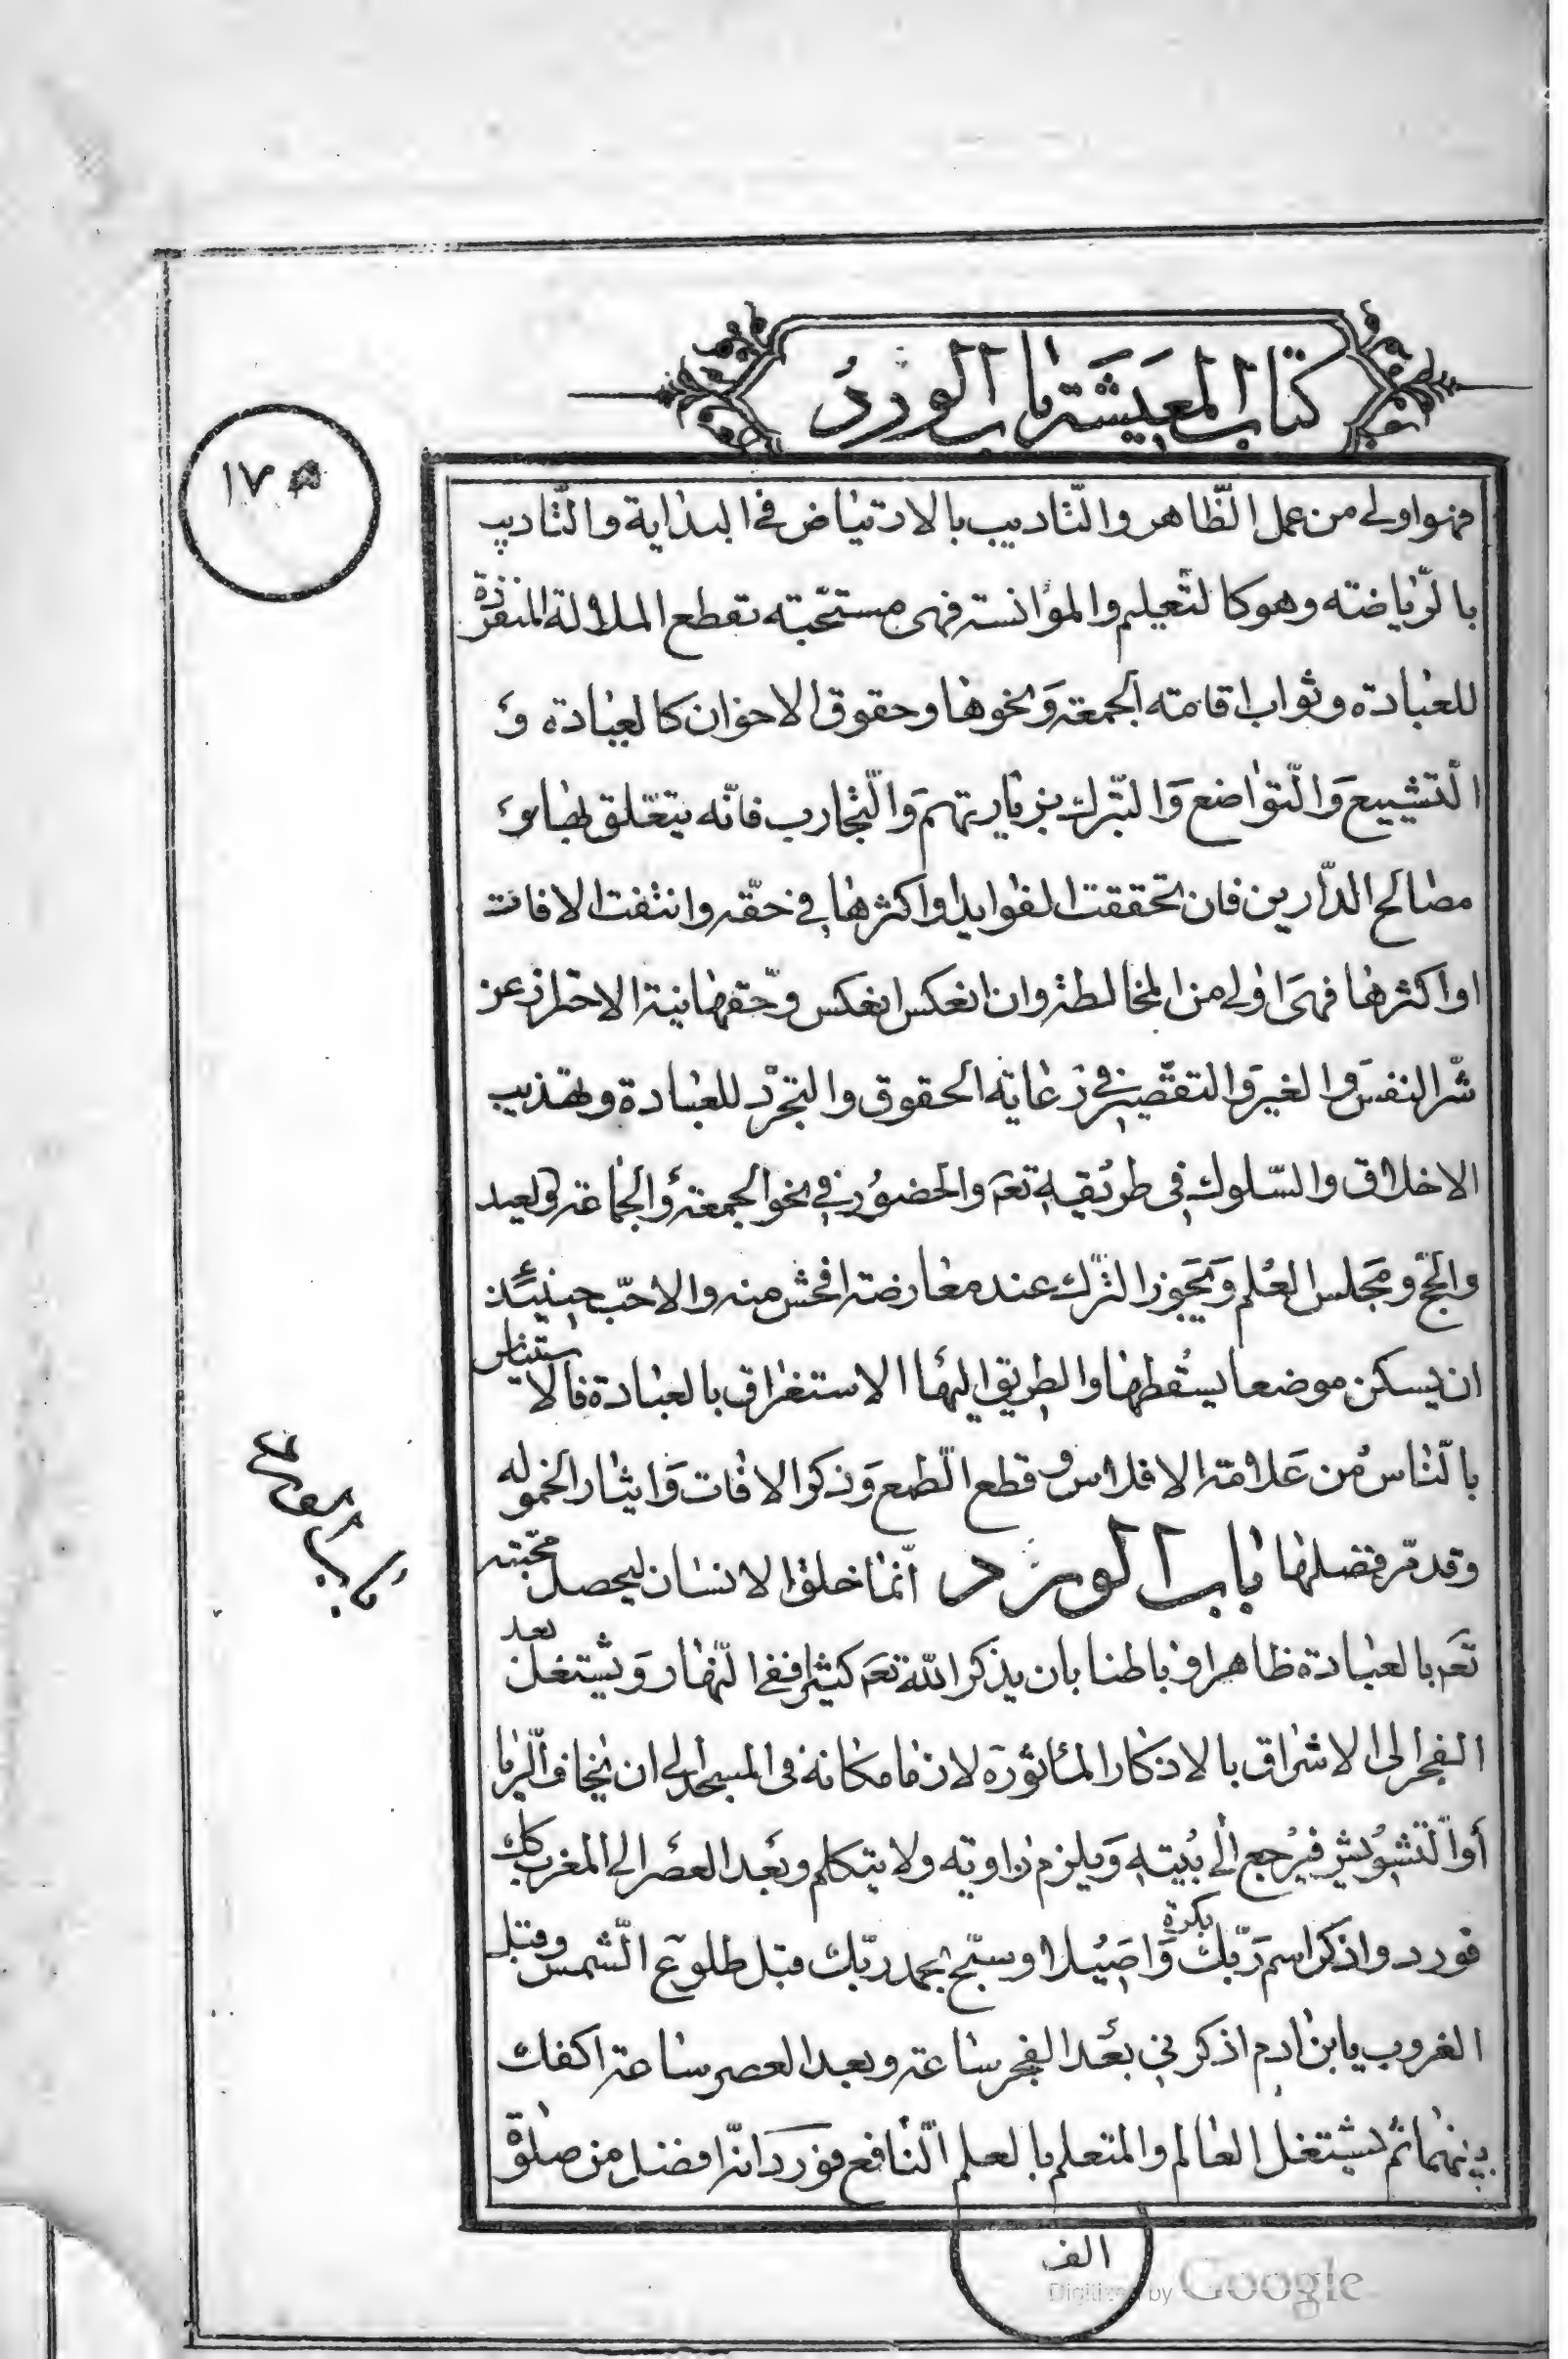 كتاب المعيشة باب الورد
١٧
فهو اولى من عمل الظاهر والتاديب بالارتياض فى البداية والتاديب
بالرّياضته وهو كالتعيلم والمؤانسته فهى مستحّبته تقطع الملالة المنفرّة
للعبادة وثواب اقامته الجمعته وَنحوها وحقوق الاخوان كالعيادة وَ
التشييع وَالتّواضع وَالتبّرك بزيارتهم وَالتّجارب فانّه يتعّلق بها
مصالح الدّارين فان تحققت الفوايد او اكثرها فى حقّه وانتفت الافات
او اكثرها فهىَ اولى من المخالطته وان انعكس انعكس وحّقها نيته الاحتراز عن
شّر النفسَ والغير وَالتقصير فى رعايته الحقوق والتجرّد للعبادة وتهذيب
الاخلاق والسّلوك فى طريقه تعَم والحضور فى نحو الجمعته وَالجماعته والعيد
والحجّ ومَجلس العلم وَيَجوز الترّك عند معارضته افحش منه والاحبّ حينئذ
ان يسكن موضعا يسقطها والطريق اليها الاستغراق بالعبادة فالاستيناس
بالنّاس من عَلامته الافلاس وقطع الّطمع وَذكر الافات وَايثار الخموله
وقد مّر فضلها باب الورد انّما خلق الانسان ليحصل محبّته
تعَم بالعبادة ظاهرا وباطنا بان يذكر اللّه تعَم كثيرا ففى النّهار وَيشتغل بعد
الفجر الى الاشراق بالاذكار المأثورة لازما مكانه فى المسجد الى ان يخاف الّريا
أو التّشويش فيرجع الى بيته وَيلزم زاويته ولا يتكلم وبعد العصر الى المغرب كك
فورد واذكر اسم رَبّك بكرة وَاصيلا وسبّح بحمد ربّك قبل طلوع الشّمس وقبل
الغروب يا بن ادم اذكرنى بعد الفجر ساعته وبعد العصر ساعته اكفك
بينهما ثم يشتغل العالم والمتعلم بالعلم النّافع فورد انّه افضل من صلوة
الف
Digitized by Google